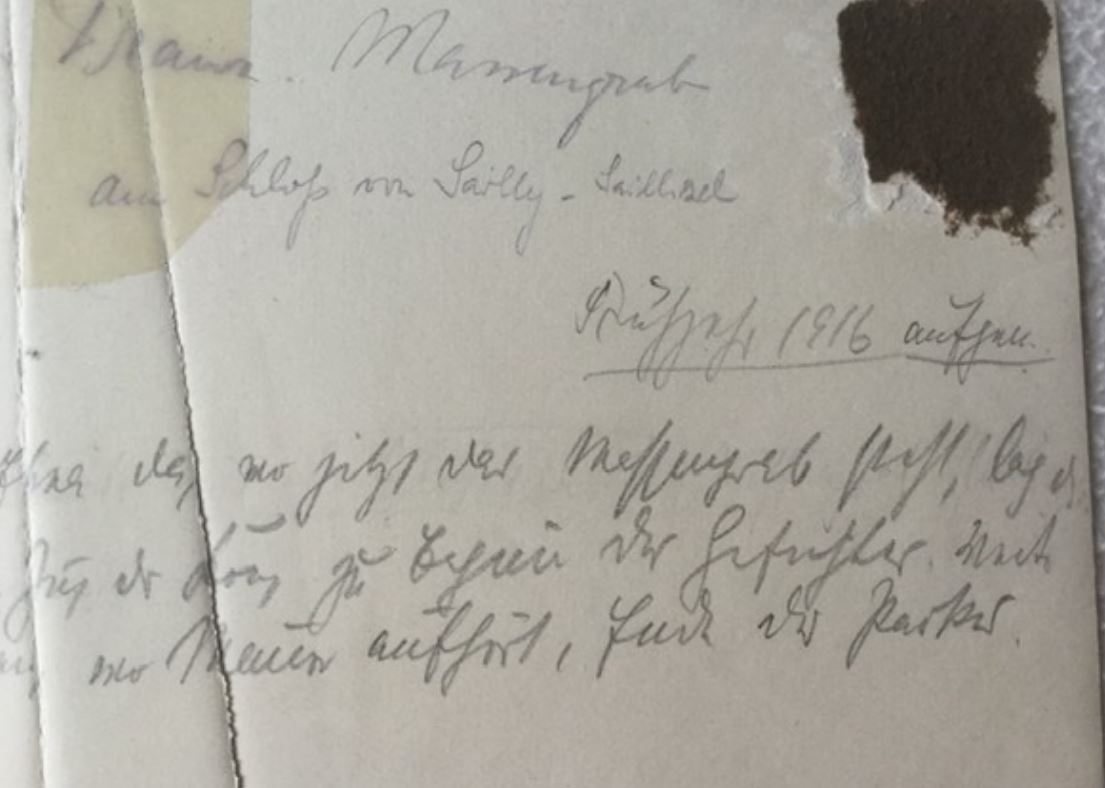 Massengrab
am Schloß von Sailly-Saillisel
Frühjahr 1916 aufgen.
da, wo jetzt das Massengrab steht, lag
zu Beginn des Gefechtes. Weit
wo Mauer aufhört, Ende des Parkes.